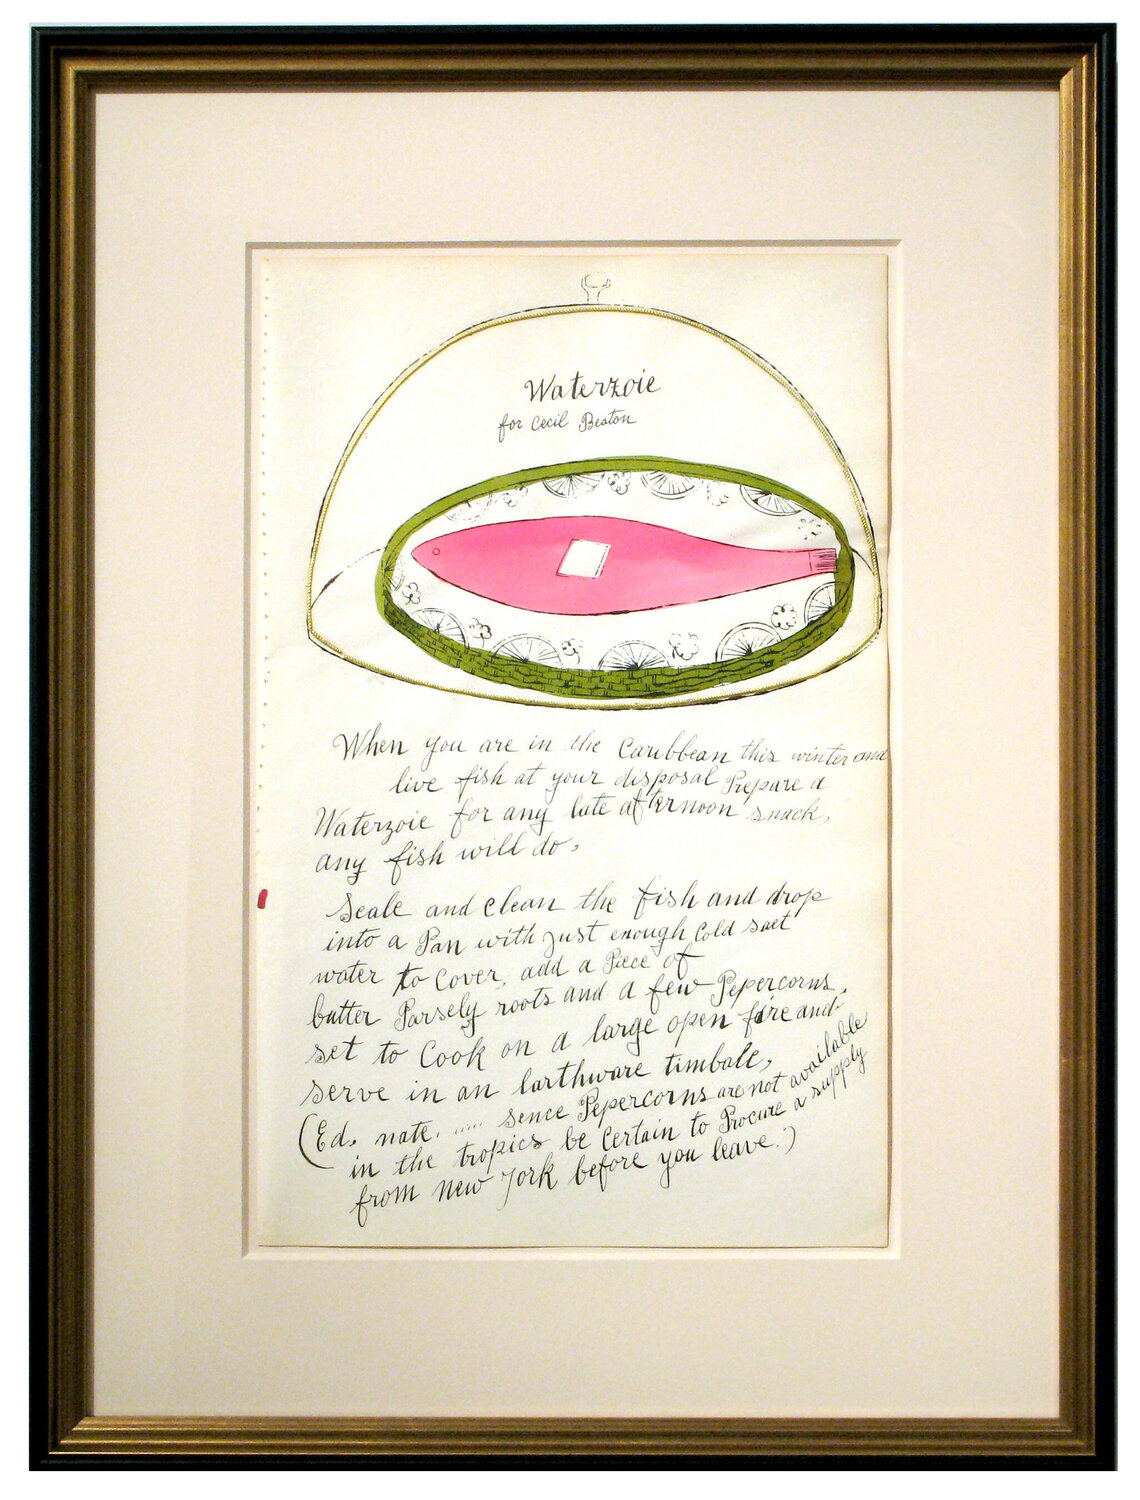 Waterzoie
for Cecil Beaton
When you are in the Caribbean this winter and
live fish at your disposal Prepare a
Waterzoie for any late afternoon snack,
any fish will do.
Scale and clean the fish and drop
into a Pan with just enough Cold salt
water to Cover, add a Piece of
butter Parsely roots and a few Pepercorns.
set to Cook on a large open fire and
serve in an earthware timbale,
(Ed. note. ..... sence Pepercorns are not available
in the tropics be Certain to Procure a supply
from New York before you leave.)